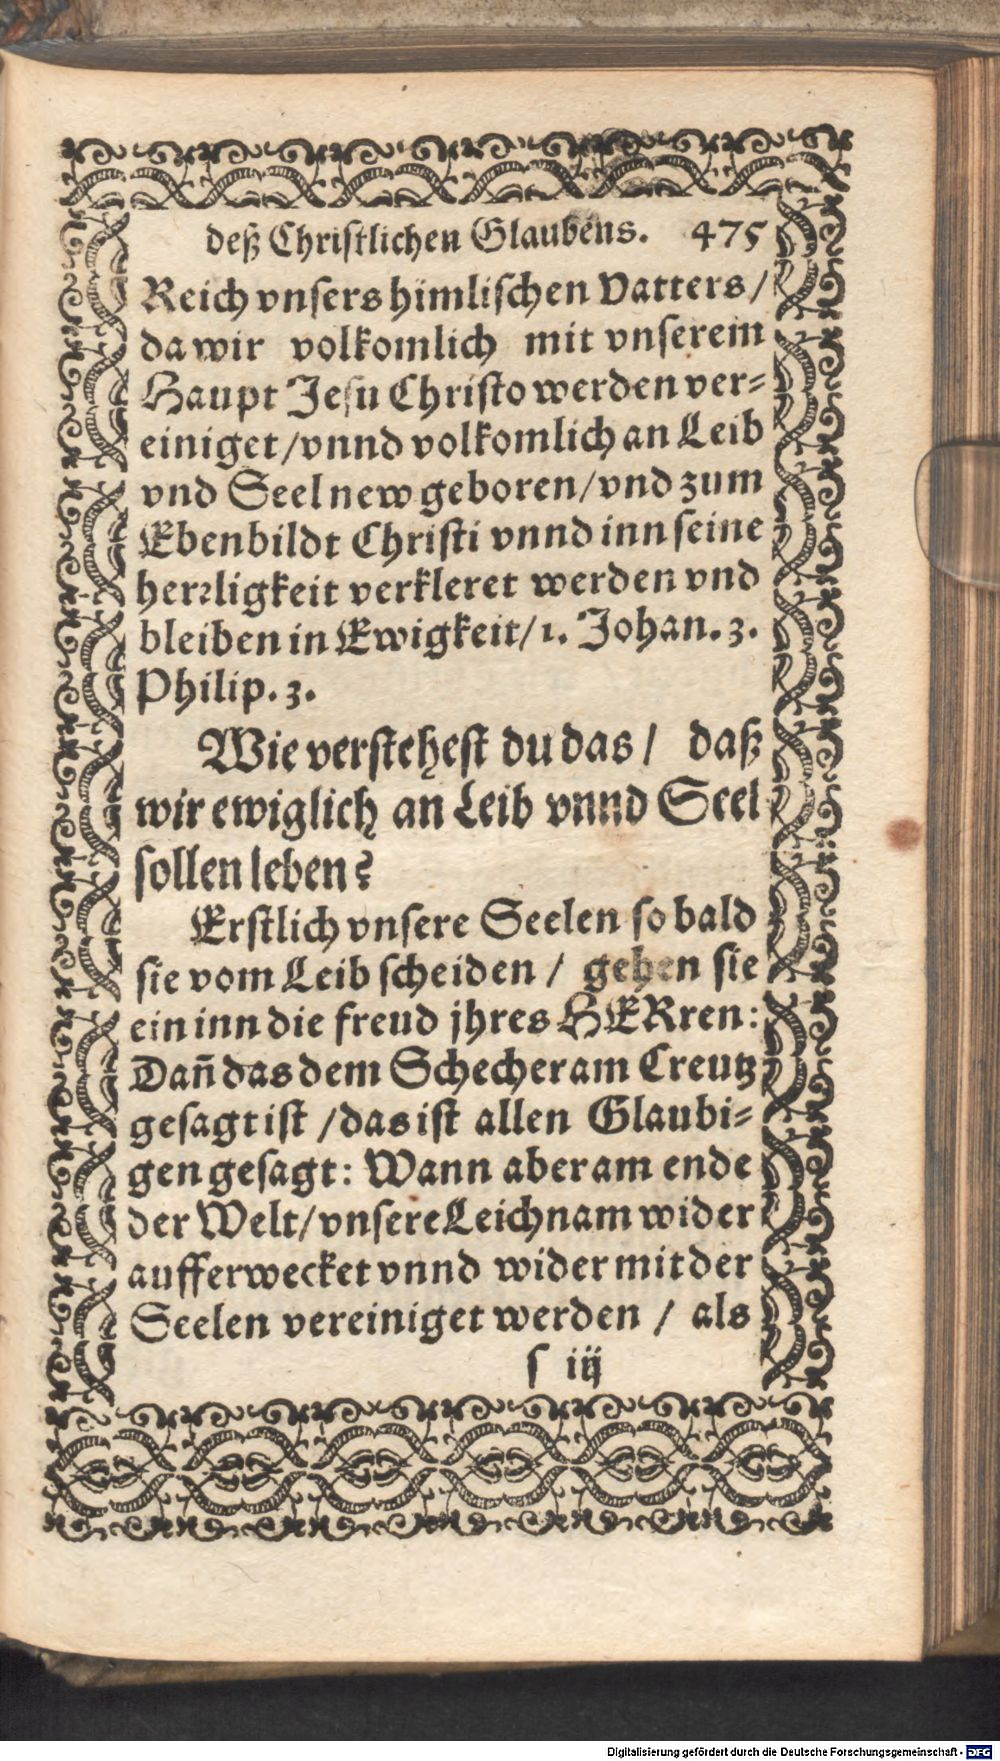 deß Christlichen Glaubens. 475
Reich vnsers himlischen Vatters/
da wir volkomlich mit vnserem
Haupt Jesu Christo werden ver-
einiget/vnnd volkomlich an Leib
vnd Seel new geboren/vnd zum
Ebenbildt Christi vnnd inn seine
herꝛligkeit verkleret werden vnd
bleiben in Ewigkeit/1. Johan. 3.
Philip. 3.
Wie verstehest du das/ daß
wir ewiglich an Leib vnnd Seel
sollen leben?
Erstlich vnsere Seelen so bald
sie vom Leib scheiden / gehen sie
ein inn die freud jhres HERren:
Dañ das dem Schecher am Creutz
gesagt ist /das ist allen Glaubi-
gen gesagt: Wann aber am ende
der Welt/vnsere Leichnam wider
aufferwecket vnnd wider mit der
Seelen vereiniget werden / als
s iij
Digitalisierung gefördert durch die Deutsche Forschungsgemeinschaft - DFG